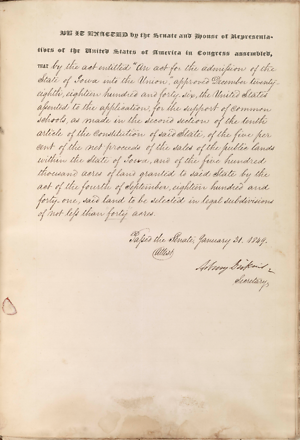 BE IT ENACTED by the Senate and House of Representa-
tives of the United States of America in Congress assembled,
That by the act entitled "An act for the admission of the
State of Iowa into the Union," approved December twenty-
eighth, eighteen hundred and forty-six, the United States
assented to the application, for the support of Common
schools, as made in the second section of the tenth
article of the Constitution of said State, of the five per
cent of the net proceeds of the sales of the public lands
within the State of Iowa, and of the five hundred
thousand acres of land granted to said State by the
act of the fourth of September, eighteen hundred and
forty-one, said land to be selected in legal subdivisions
of not less than forty acres.
Passed the Senate, January 31. 1849.
Attest
Asbury Dickins
Secretary